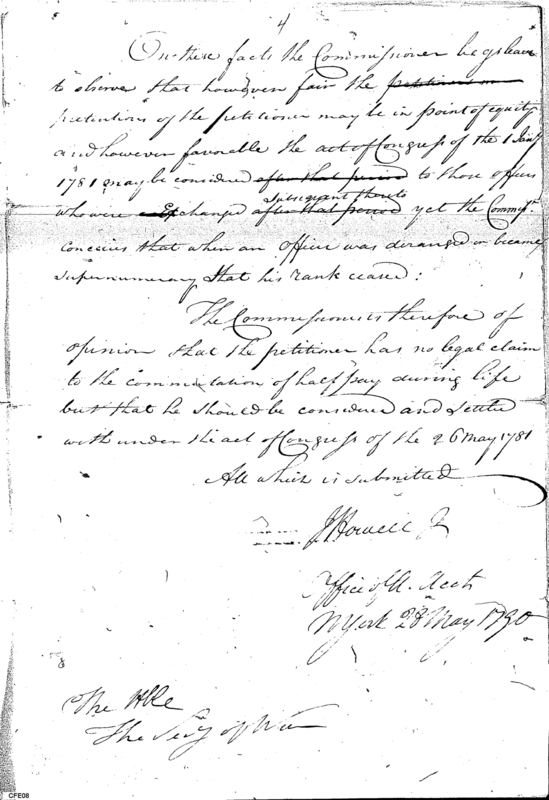 4
On these facts the Commissioner begs leave
to observe that however fair the petitioners
pretentions of the petitioner may be in point of equity
and however favorable the act of Congress of the 1 Jany
1781 may be considered after that period to those officers
subsequent thereto
who were Exchanged after that period yet the Commissr
conceives that when an officer was deranged or became
supernumeracy that his rank ceased:
The Commissioner is therefore of
opinion that the petitioner has no legal claim
to the commutation of half pay during life
but that he should be considered and settled
with under the act of Congress of the 26 May 1781
All which is submitted
J Howell Jr
Office of A. Accts
NYork 28 May 1790
The Hble
The Secy of War
CFE08